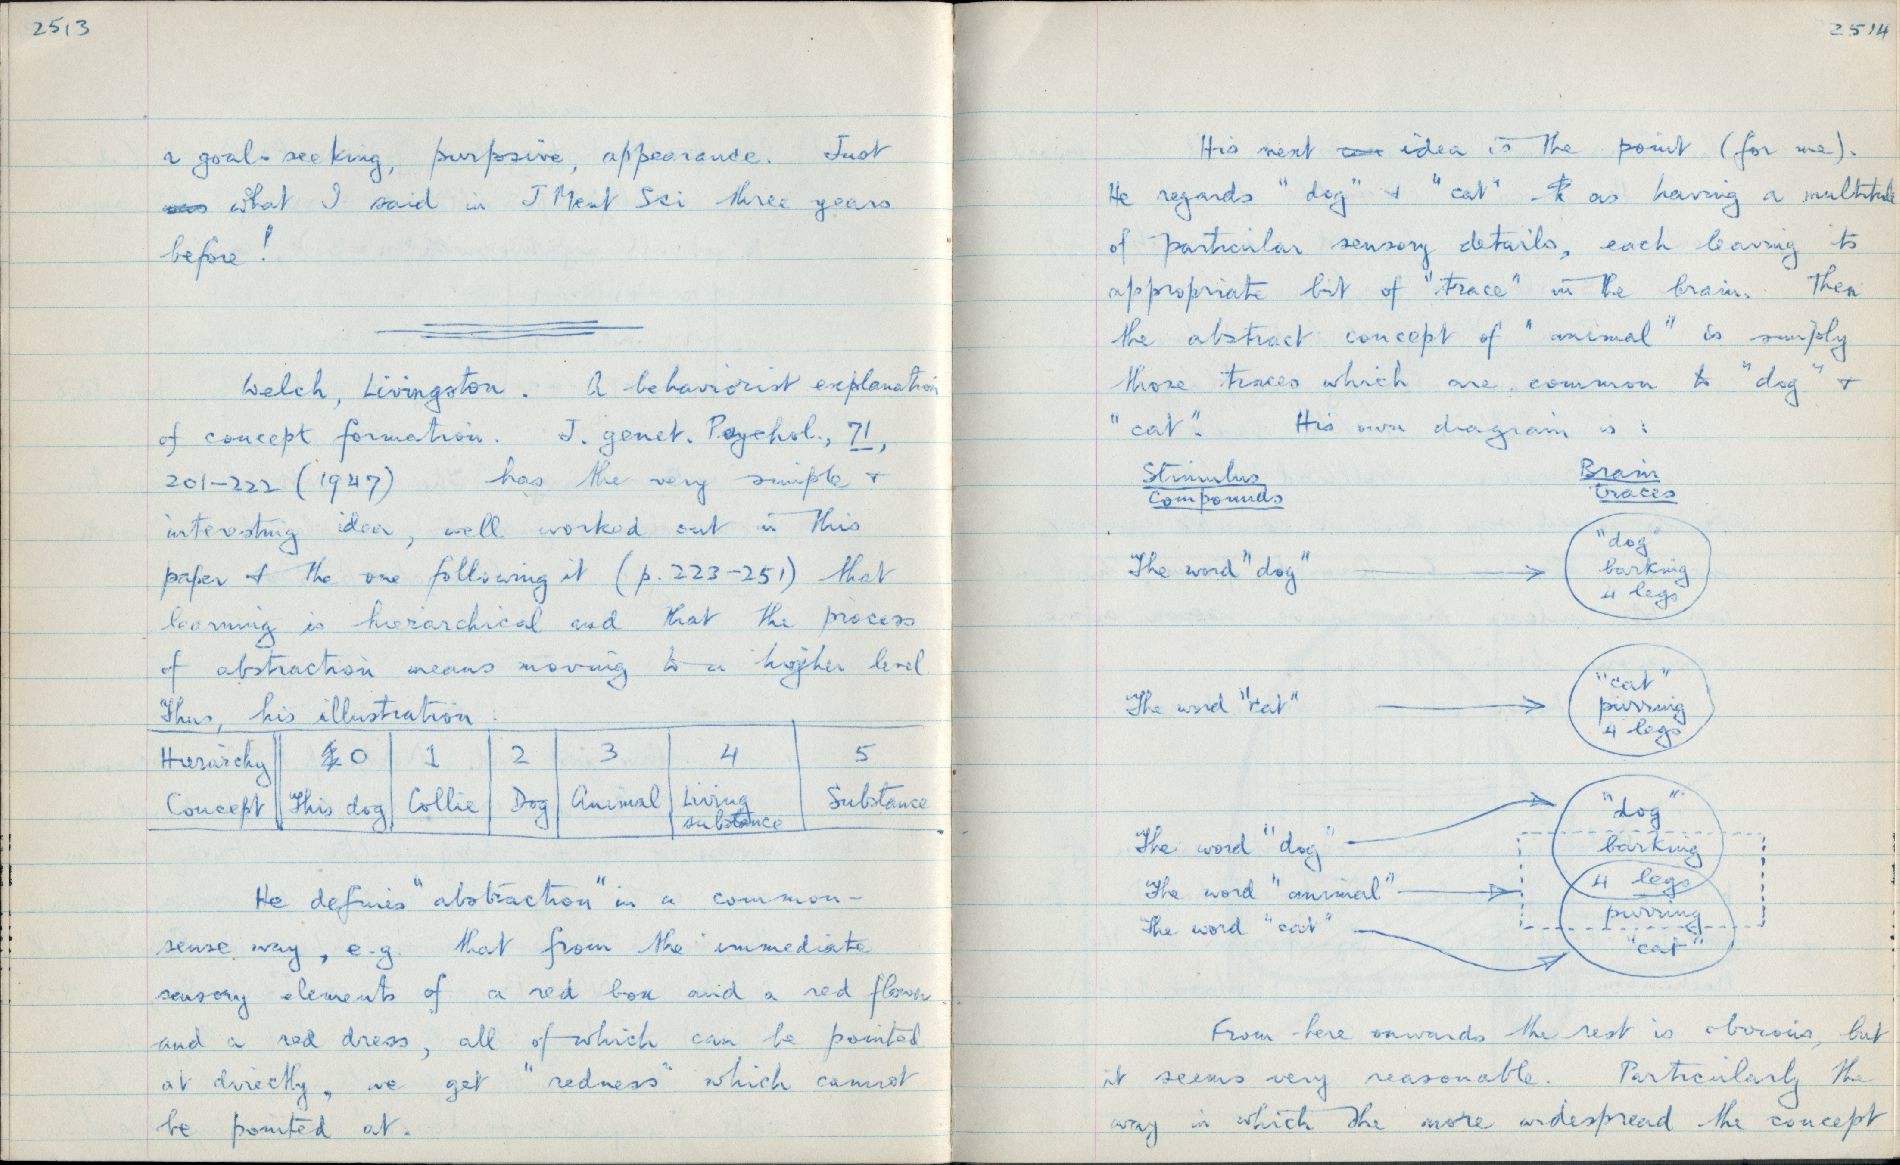 2513
a goal-seeking, purpsive, appearance. Just
what I said in J Ment Sci three years
before!
Welch, Livingston. A behaviorist explanation
of concept formation. J. genet. Psychol., 71,
201-222 (1947) has the very simple +
interesting idea, well worked out in this
paper + the one following it (p. 223-251) that
learning is hierarchical and that the process
of abstraction means moving to a higher level
Thus, his illustration:
Hierarchy 0 1 2 3 4 5
Concept This dog Collie Dog Animal Living substance Substance
He defines "abstraction" in a common-
sense way, e.g. that from the immediate
sensory elements of a red box and a red flower
and a red dress, all of which can be pointed
at directly, we get "redness" which cannot
be pointed at.
2514
His next idea is the point (for me).
He regards "dog" + "cat" as having a multitude
of particular sensory details, each leaving its
appropriate bit of "trace" in the brain. Then
the abstract concept of "animal" is simply
those traces which are common to "dog" +
"cat". His own diagram is:
Stimulus Brain
Compounds traces
"dog"
The word "dog" barking
4 legs
"cat"
The word "cat" purring
4 legs
"dog"
The word "dog" barking
The word "animal" 4 legs
The word "cat" purring
"cat"
From here onwards the rest is obvious, but
it seems very reasonable. Particularly the
way in which the more widespread the concept